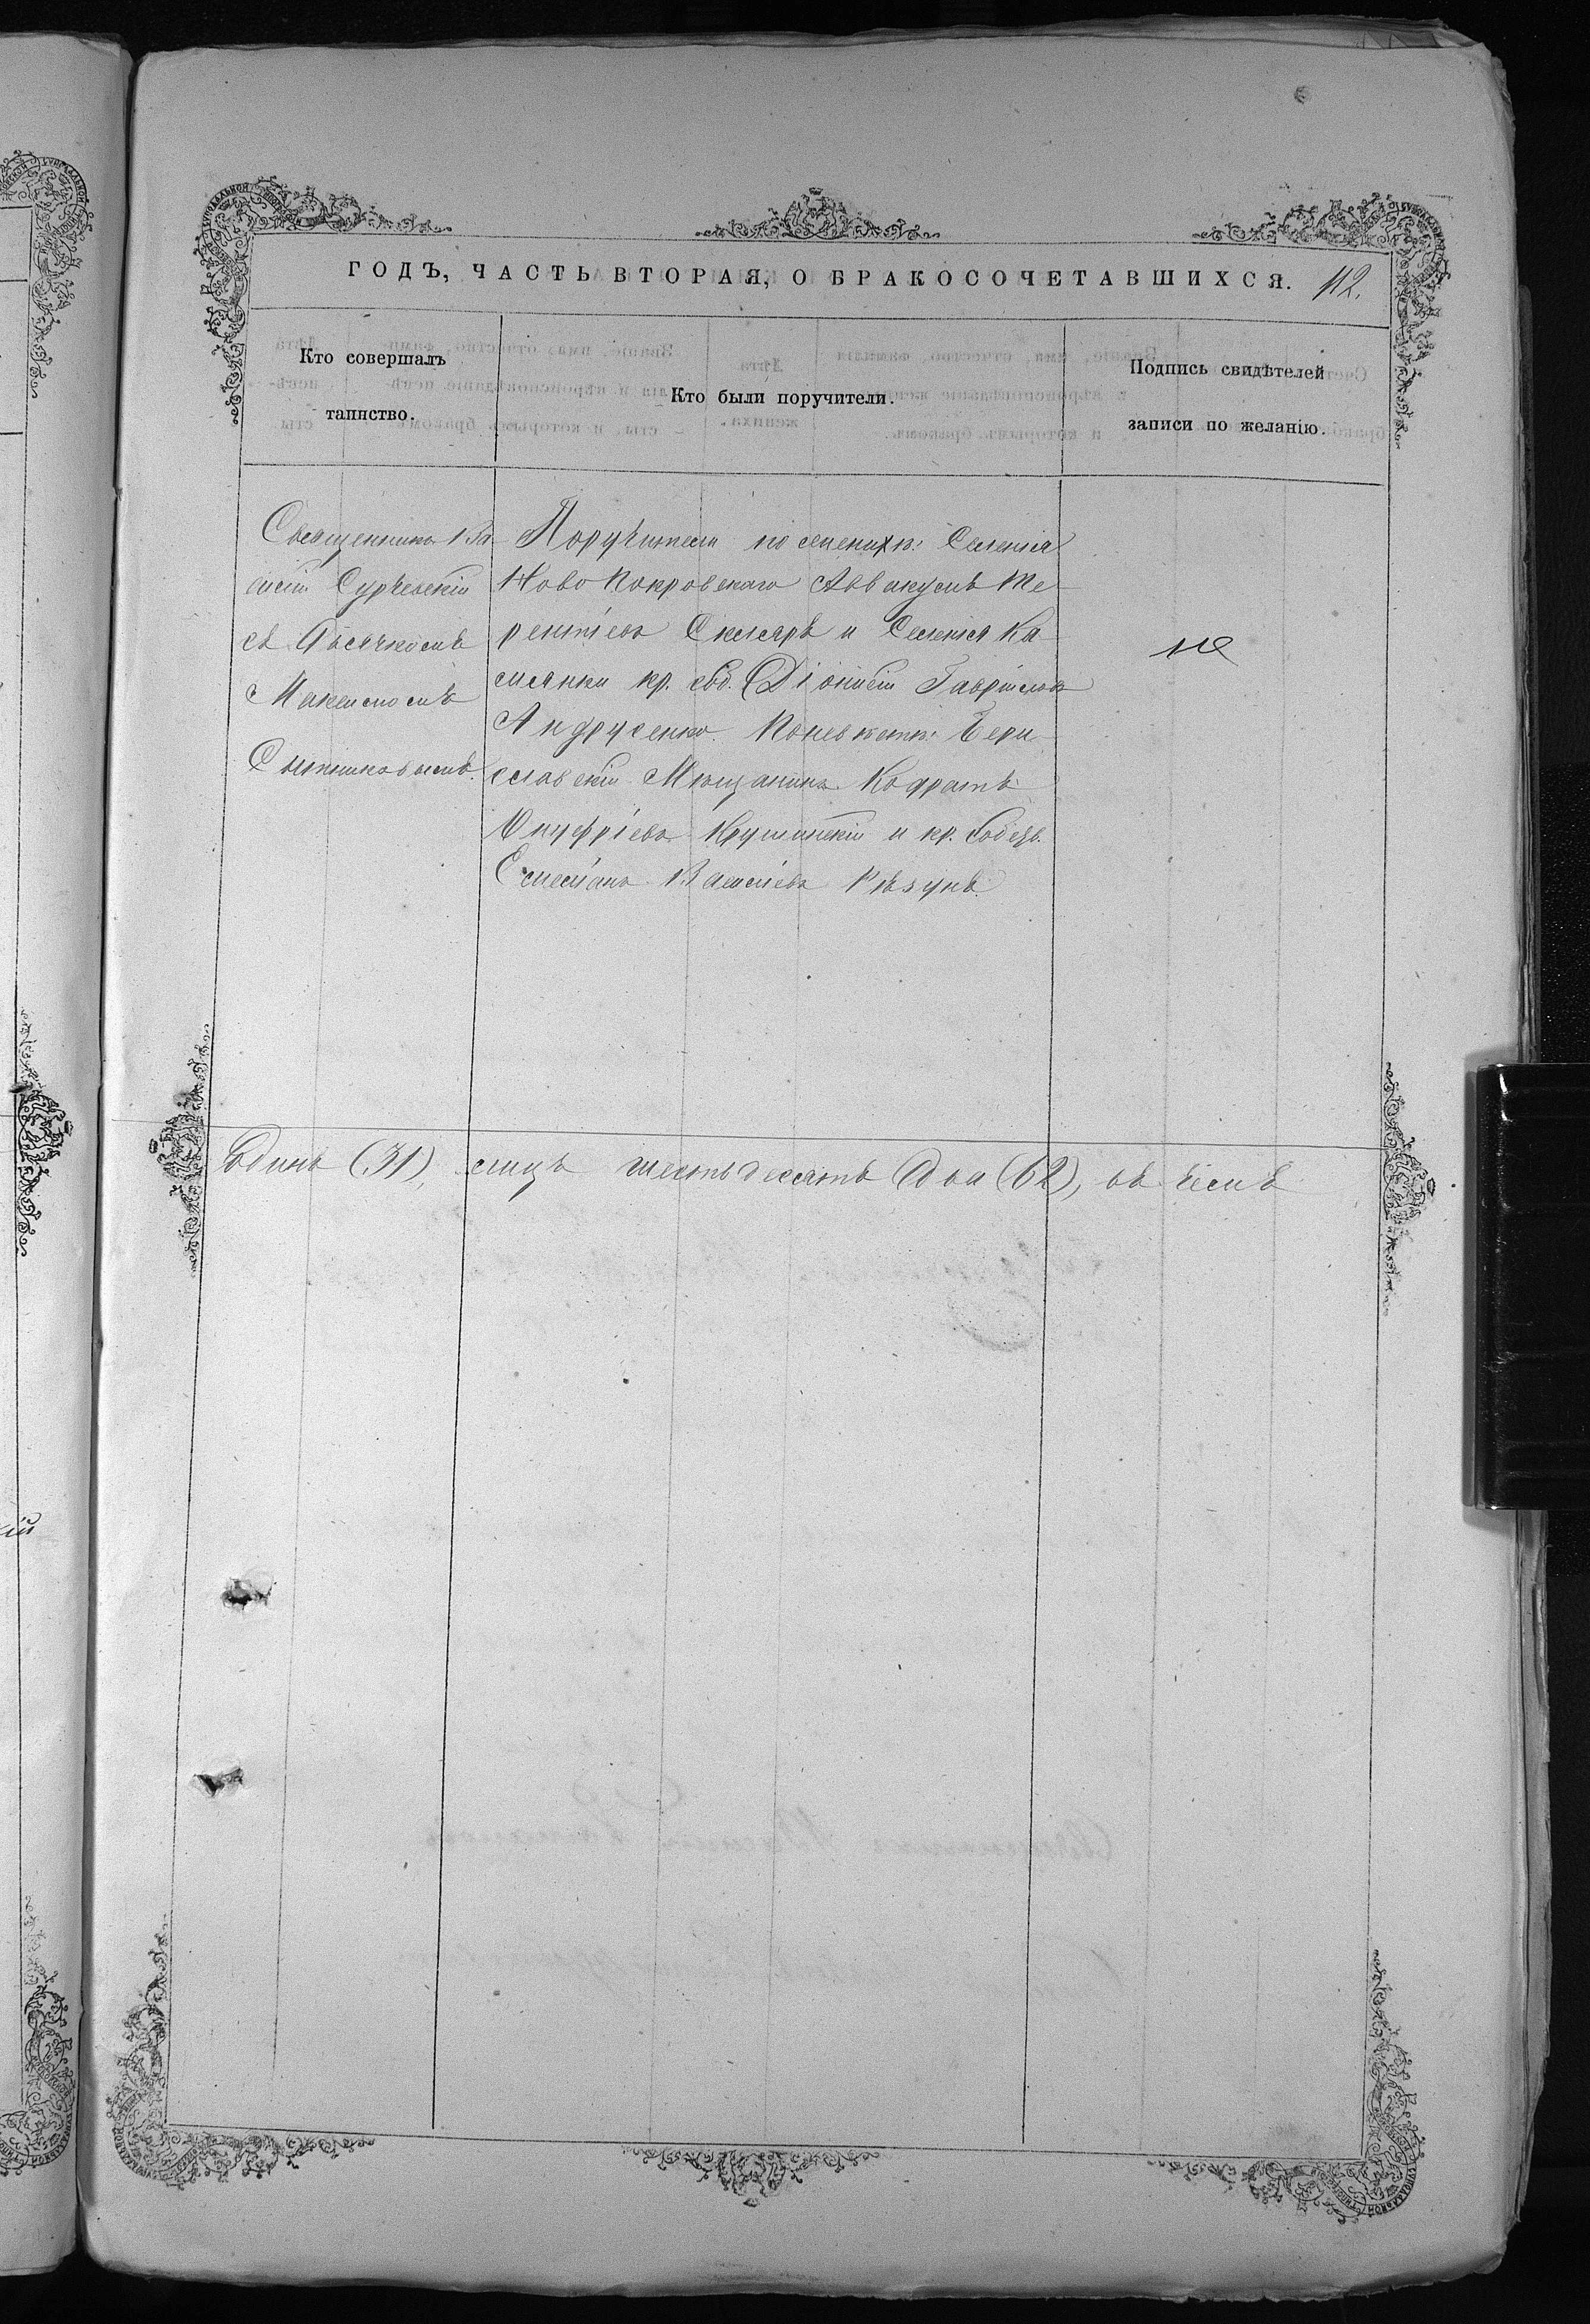 ГОДЪ, ЧАСТЬ ВТОРАЯ, О БРАКОСОЧЕТАВШИХСЯ. 112.
Кто совершалъ
таинство.
Кто были поручители.
Подпись свидѣтелей
записи по желанію.
Священникъ Ва-
силій Сурчевскій
съ Дьячкомъ
Максимомъ
Сытниковымъ.
Поручители по женихѣ: Селенія
Ново Покровскаго Аввакумъ Те-
рентіевъ Скляръ и Селенія Ка-
мянки кр. соб. Діонисій Гавріиловъ
Андрусенко. По невѣстѣ: Бери-
славскій Мѣщанинъ Кодратъ
Онуфріевъ Крушинскій и кр. собств.
Емеліанъ Василіевъ Рѣзунъ.
одинъ (31), лицъ шестьдесятъ два (62), въ чемъ